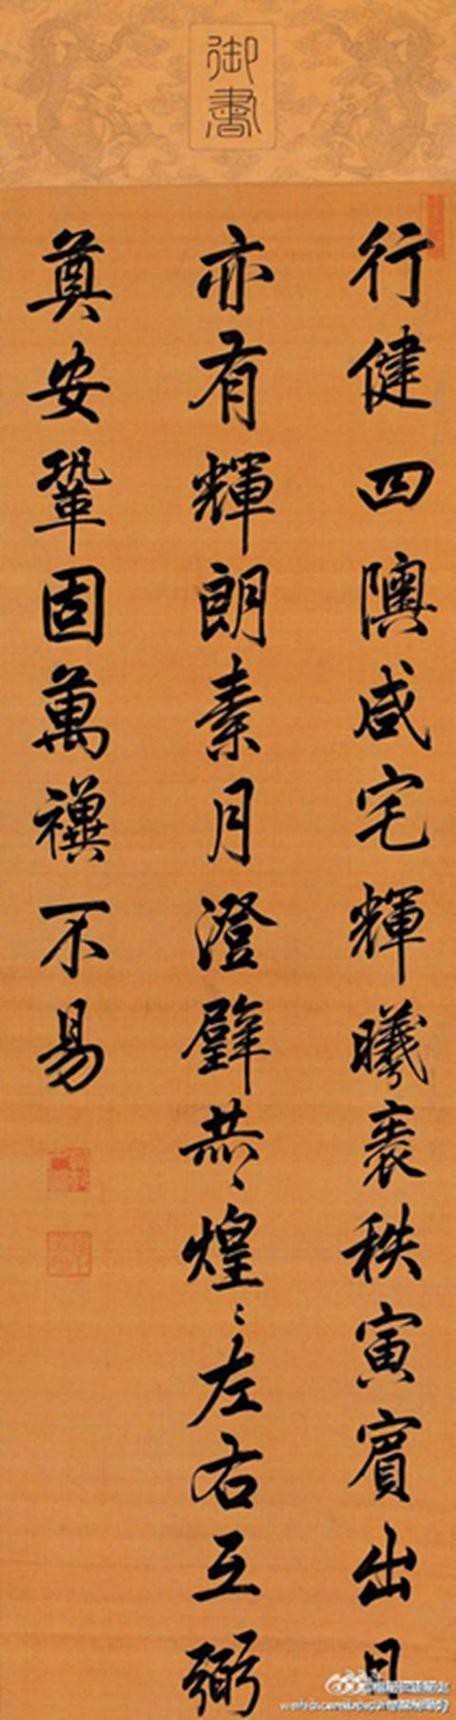 御書
行健四隩咸宅輝曦秩寅賓出日
亦有輝朗素月澄璧恭〻煌〻左右互弼
奠安鞏固萬禩不易